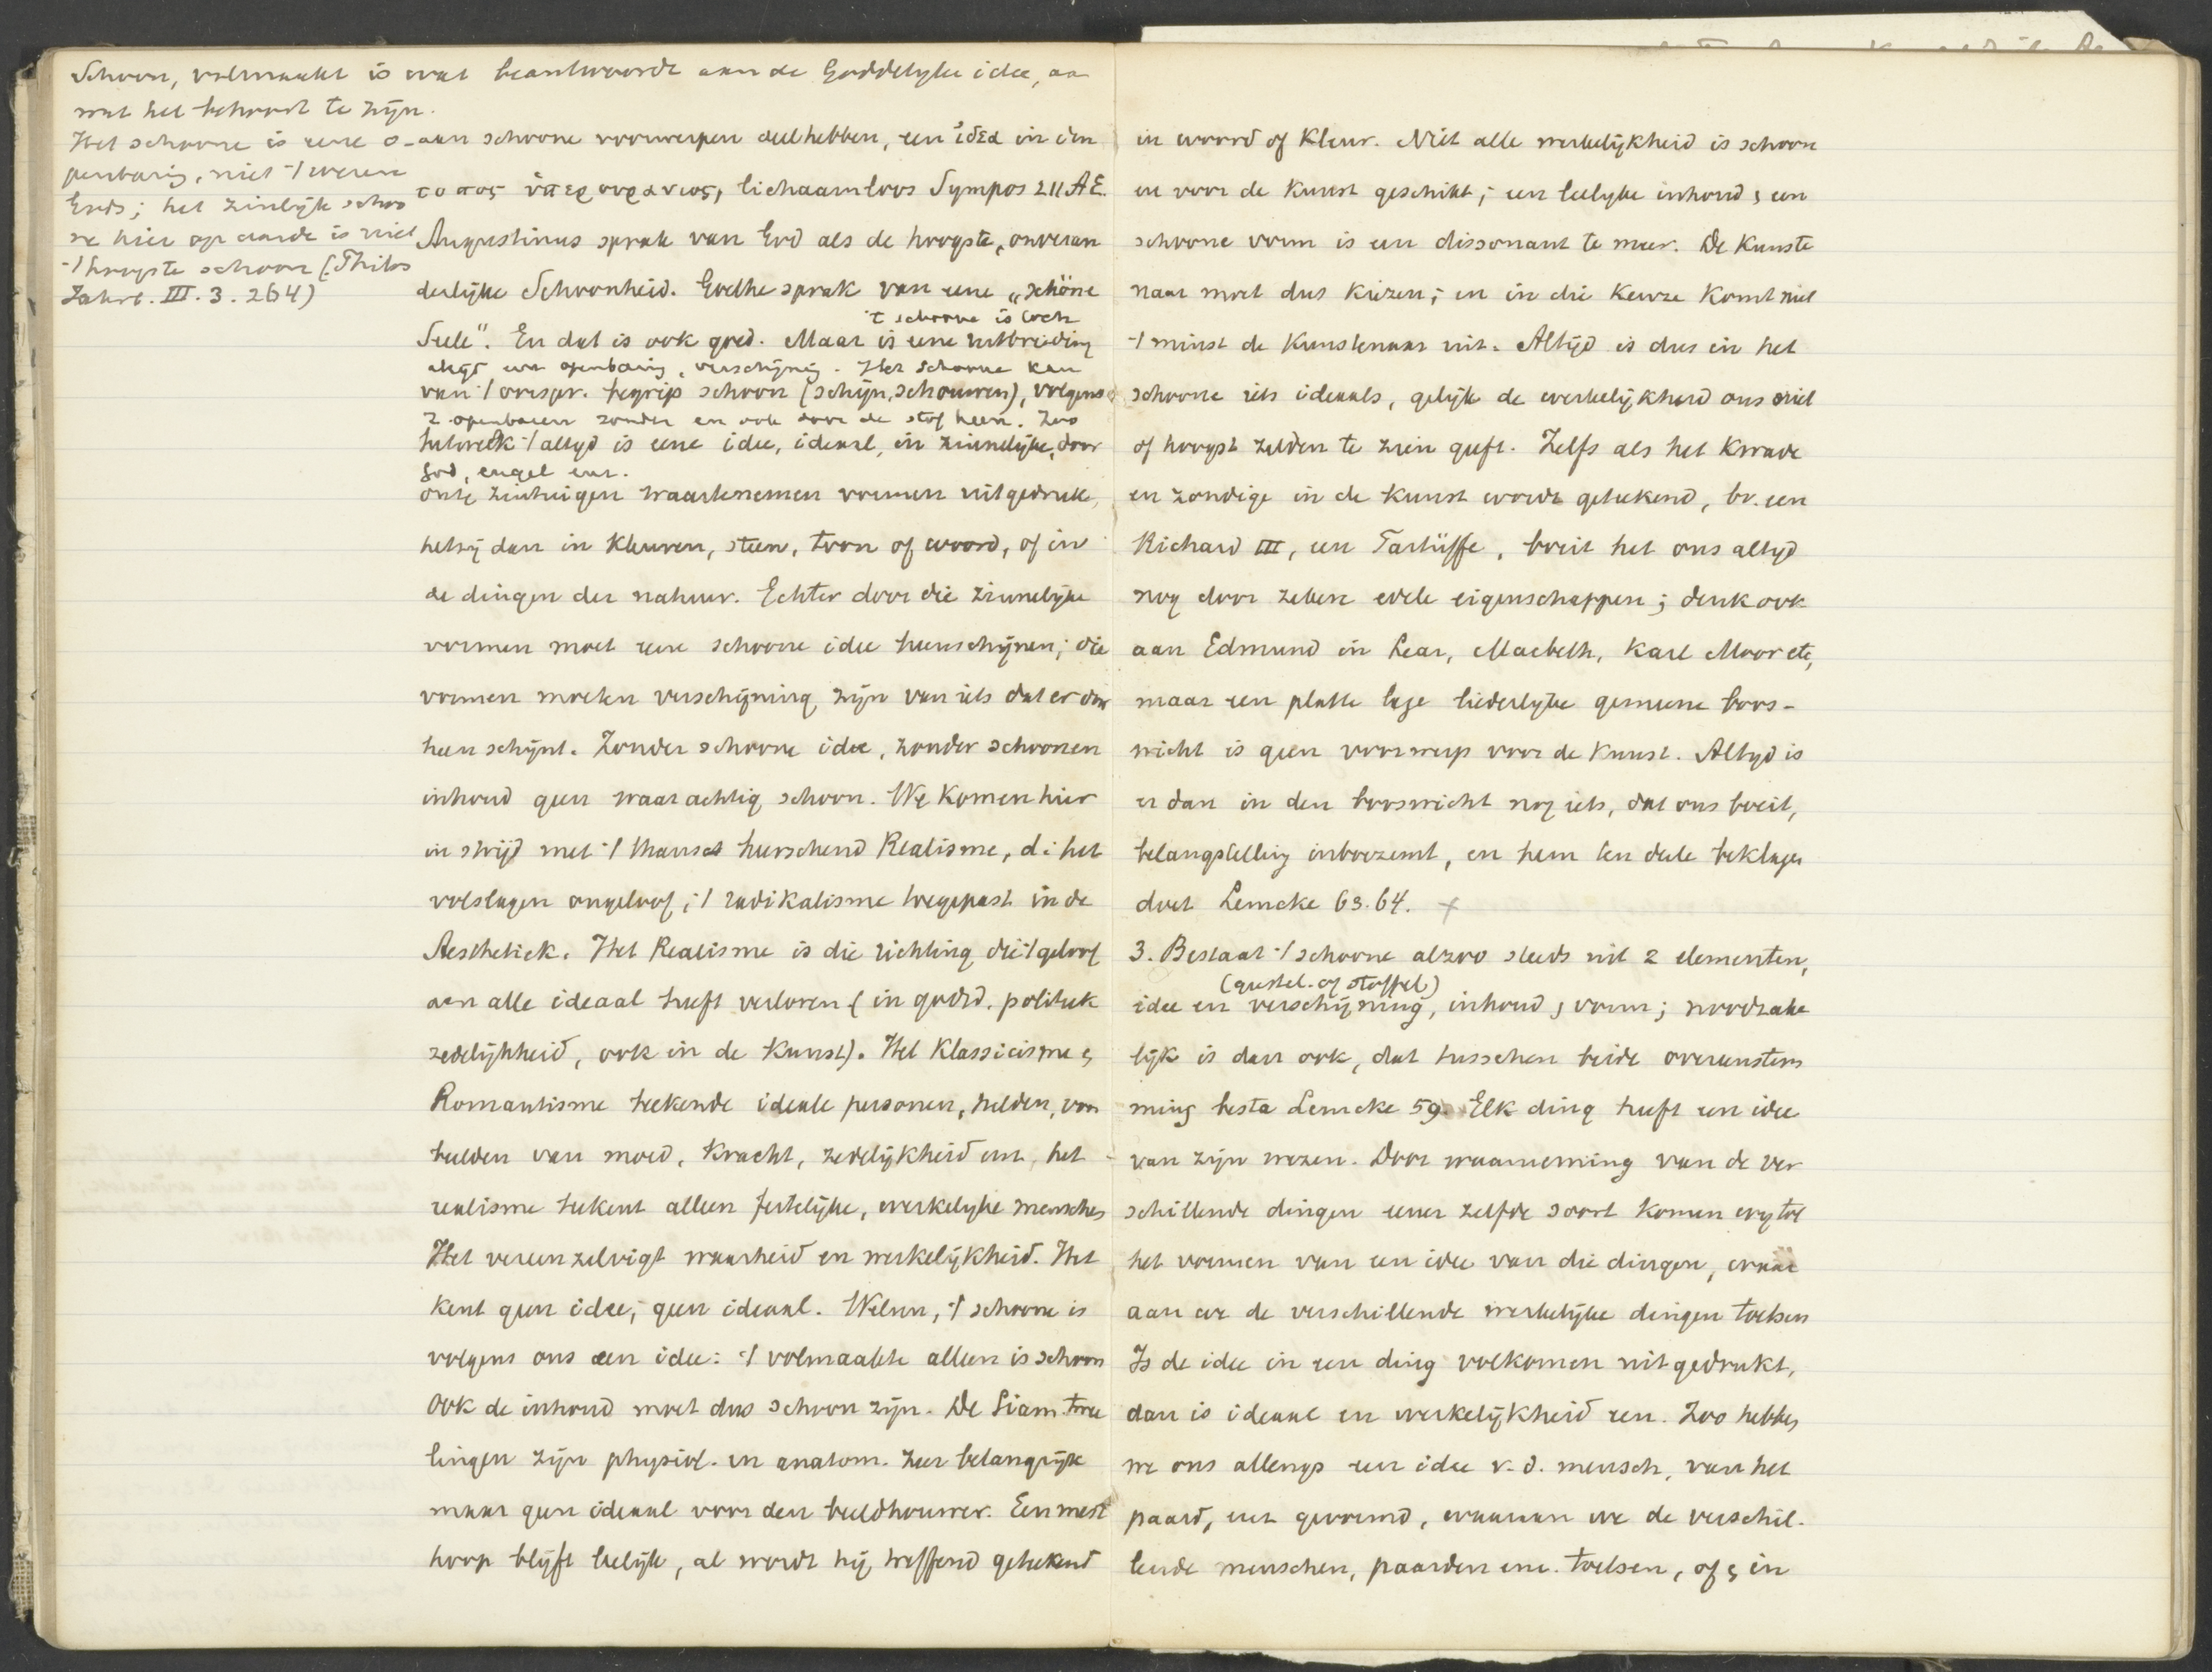 Schoon, volmaakt is wat beantwoordt aan de Goddelyke idee, aan
wat het behoort te zijn.
Het schoone is eene o-
penbaring, niet 't wezen
Gods; het zinlijk schoo
ne hier op aarde is niet
't hoogste schoon (Philos
Jahrb. III. 3. 264)
aan schoone voorwerpen deel hebben, een ἰδεα in den
τοπος ὑπερουρανιος, lichaamloos Sympos 211 A E.
Augustinus sprak van God als de hoogste, onveran
derlijke Schoonheid. Goethe sprak van eene „schöne
't schoone is toch
Seele". En dat is ook goed. Maar is eene uitbreiding
altijd een openbaring, verschijning. Het schoone kan
van 't oorspr. begrip schoon (schijn, schouwen), volgens
z. openbaren zonder en ook door de stof heen. Zoo
hetwelk 't altyd is eene idee, ideaal, in zinnelijke, door
God, engel enz.
onze zintuigen waartenemen vormen uitgedrukt,
hetzij dan in kleuren, steen, toon of woord, of in
de dingen der natuur. Echter door die zinnelijke
vormen moet eene schoone idee heenschijnen; die
vormen moeten verschijning zijn van iets dat er door
heen schijnt. Zonder schoone idee, zonder schoonen
inhoud geen waarachtig schoon. We komen hier
in strijd met 't thans heerschend Realisme, d.i. het
volslagen ongeloof, 't radikalisme toegepast in de
Aesthetiek. Het Realisme is die richting die 't geloof
aan alle ideaal heeft verloren (in godsd. politiek
zedelijkheid, ook in de kunst). Het Klassicisme en
Romantisme teekende ideale personen, helden, voor
beelden van moed, kracht, zedelijkheid enz, het
realisme teekent alleen feitelijke, werkelyke menschen
Het vereenzelvigt waarheid en werkelijkheid. Het
kent geen idee, geen ideaal. Welnu, 't schoone is
volgens ons een idee: 't volmaakte alleen is schoon
Ook de inhoud moet dus schoon zijn. De Siam. twee
lingen zijn physiol. en anatom. zeer belangrijk
maar geen ideaal voor den beeldhouwer. Een mest
hoop blijft leelijk, al wordt hij treffend geteekend
in woord of kleur. Niet alle werkelijkheid is schoon
en voor de kunst geschikt; een leelyke inhoud en een
schoone vorm is een dissonant te meer. De kunste
naar moet dus kiezen; en in die keuze komt niet
't minst de kunstenaar uit. Altijd is dus in het
schoone iets ideaals, gelijk de werkelijkheid ons niet
of hoogst zelden te zien geeft. Zelfs als het kwade
en zondige in de kunst wordt geteekend, bv. een
Richard III, een Tartüffe, boeit het ons altyd
nog door zekere edele eigenschappen; denk ook
aan Edmund in Lear, Macbeth, Karl Moor etc,
maar een platte lage liederlyke gemeene boos-
wicht is geen voorwerp voor de kunst. Altyd is
er dan in den booswicht nog iets, dat ons boeit,
belangstelling inboezemt, en hem ten deele beklagen
doet Lemcke 63.64. x
3. Bestaat 't schoone alzoo steeds uit 2 elementen,
(geestel. of stoffel.)
idee en verschijning, inhoud en vorm; noodzake
lijk is dan ook, dat tusschen beide overeenstem
ming besta Lemcke 59. Elk ding heeft een idee
van zijn wezen. Door waarneming van de ver
schillende dingen eener zelfde soort komen wy tot
het vormen van een idee van die dingen, waar
aan we de verschillende werkelijke dingen toetsen
Is de idee in een ding volkomen uitgedrukt,
dan is ideaal en werkelijkheid een. Zoo hebben
we ons allengs een idee v. d. mensch, van het
paard, enz gevormd, waaraan we de verschil-
lende menschen, paarden enz. toetsen, of ze in